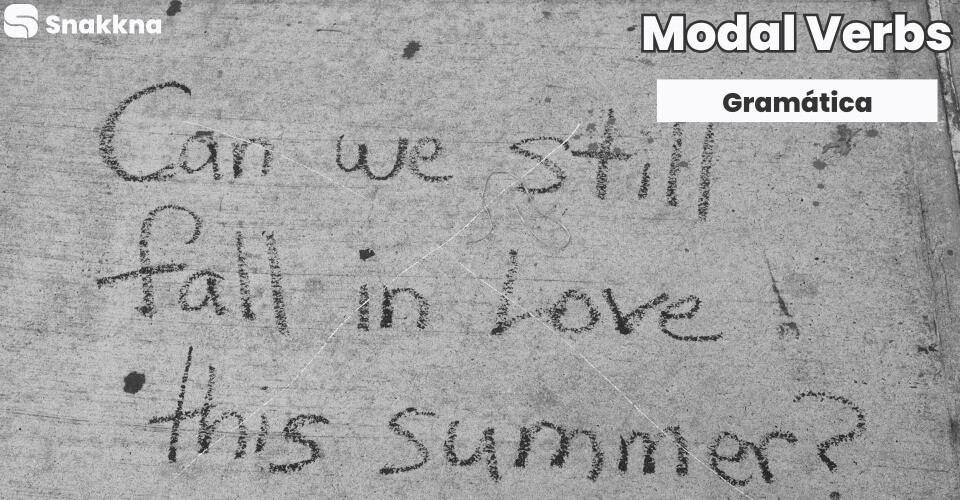 Snakkna
Modal Verbs
Gramática
Can we still
fall in Love
this summer?